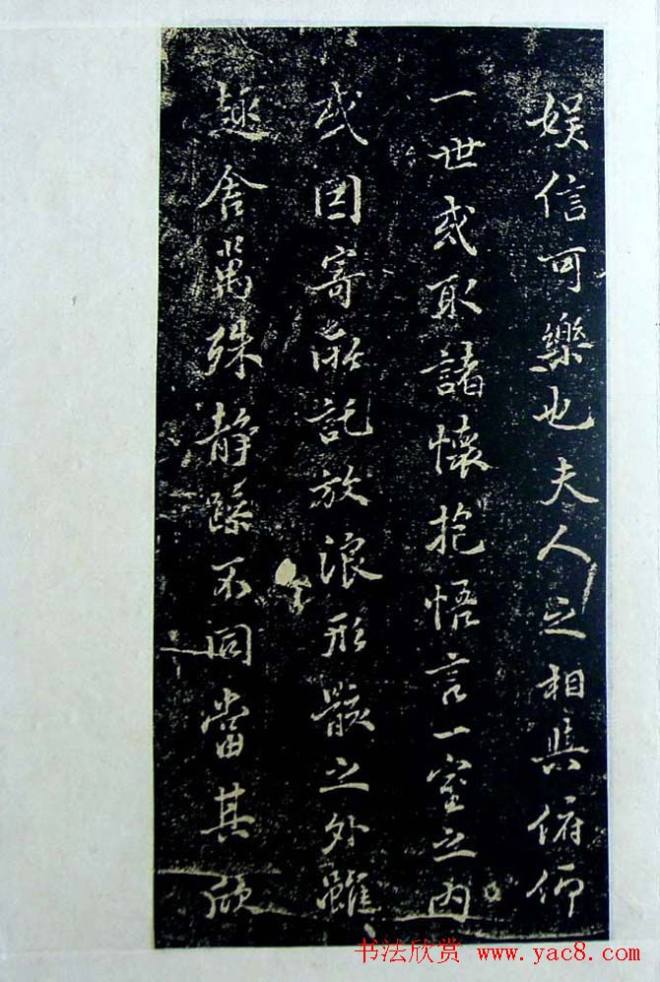 娱信可樂也夫人之相與俯仰
一世或取諸懷抱悟言一室之內
或因寄所託放浪形骸之外雖
趣舍萬殊静躁不同當其欣
书法欣赏 www.yac8.com